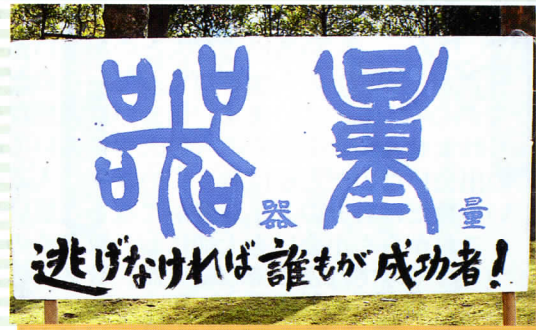 器量
器 量
逃げなければ誰もが成功者!